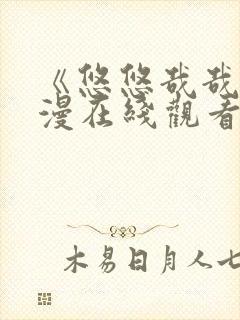 《悠悠哉哉
漫在綫觀看
木易日月人七